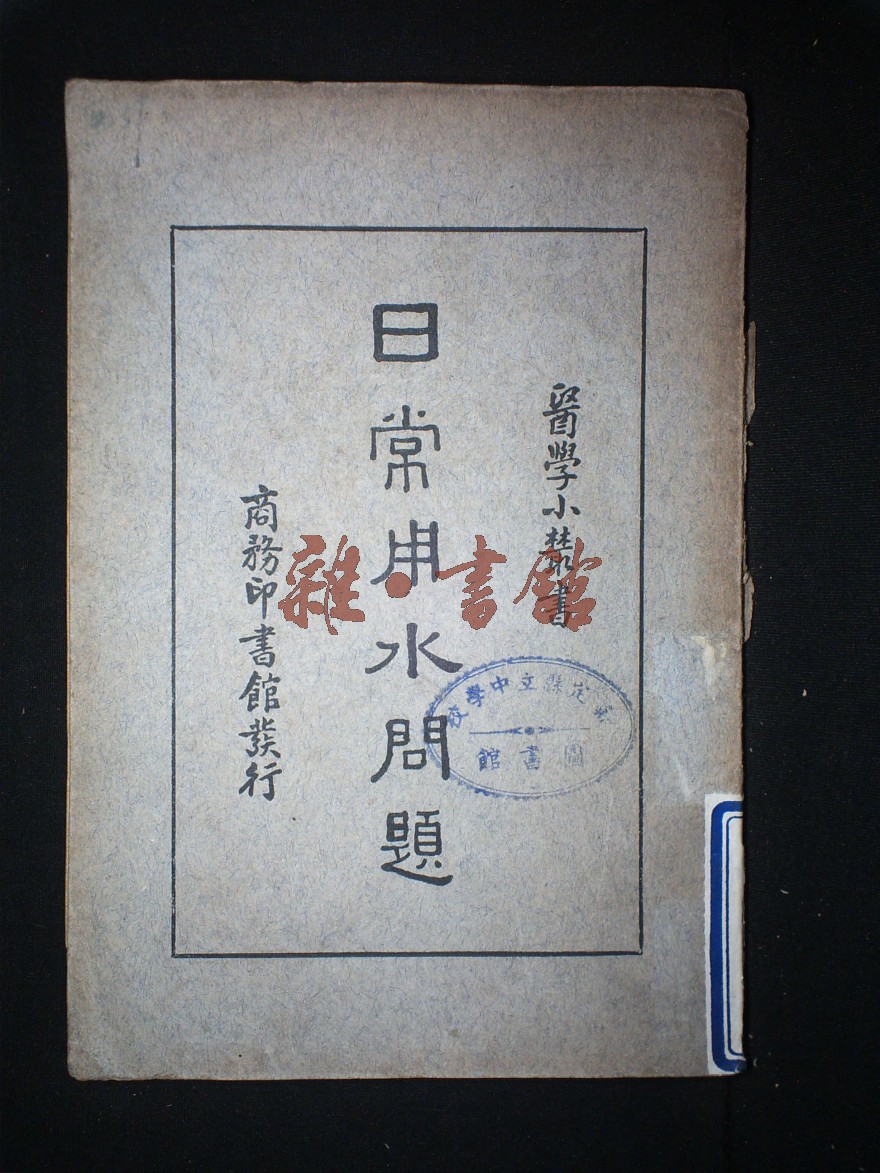 醫學小叢書
日常用水問題
商務印書館發行
雜·書館
定縣立中學校
圖書館